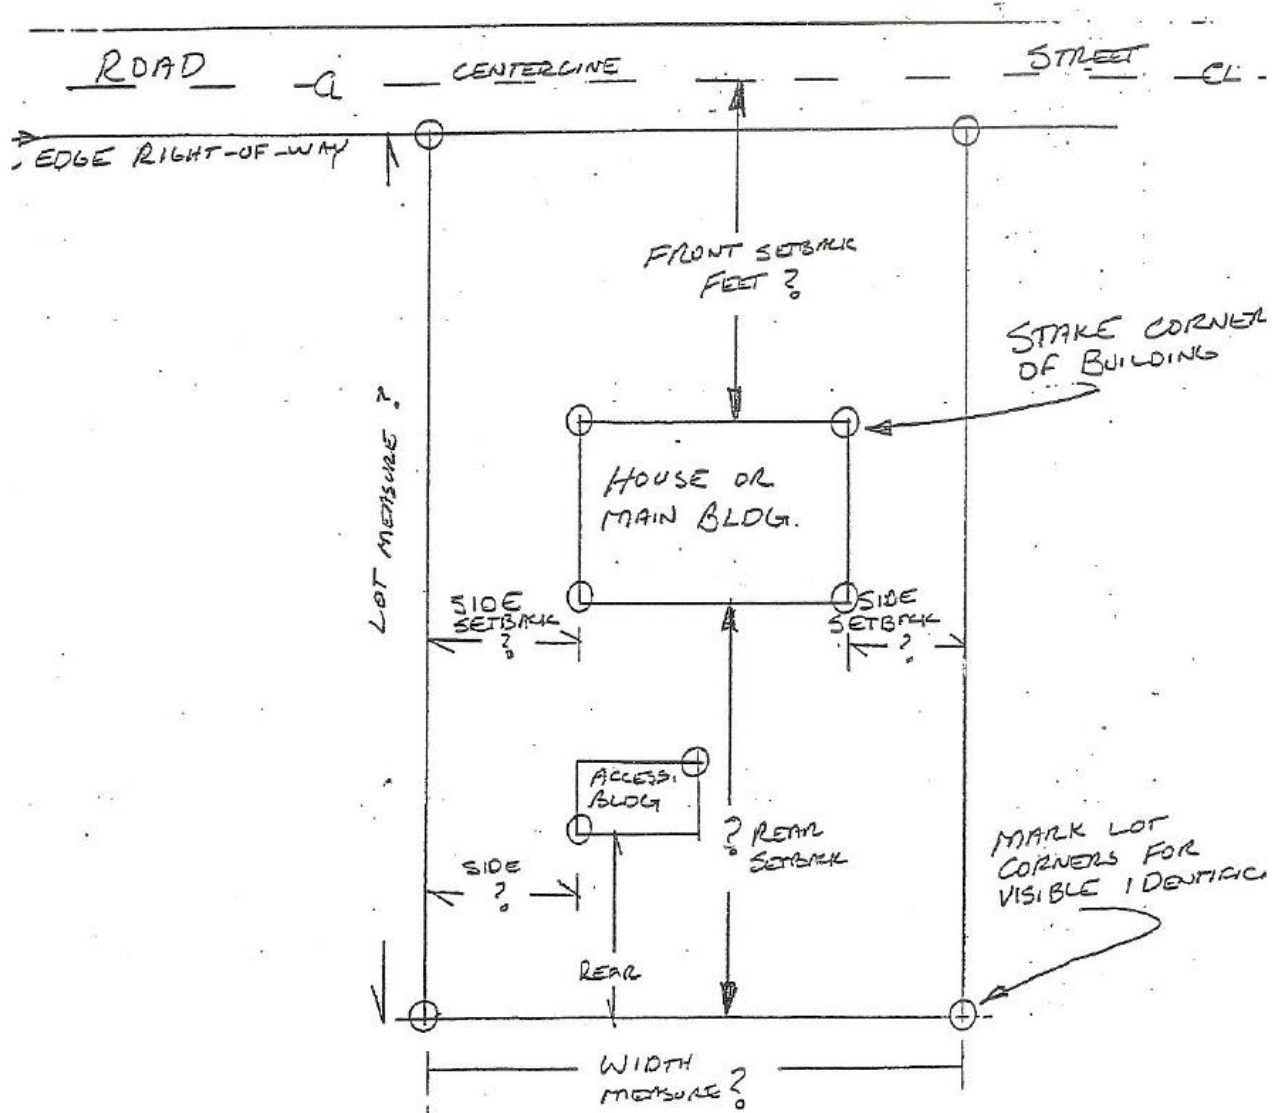 ROAD
CL
CENTERLINE
STREET
CL
EDGE RIGHT-OF-WAY
FRONT SETBACK
FEET ?
STAKE CORNER
OF BUILDING
LOT MEASURE ?
HOUSE OR
MAIN BLDG.
SIDE
SETBACK
?
SIDE
SETBACK
?
ACCESS.
BLDG
? REAR
SETBACK
SIDE
?
REAR
MARK LOT
CORNERS FOR
VISIBLE IDENTIFIC
WIDTH
MEASURE ?